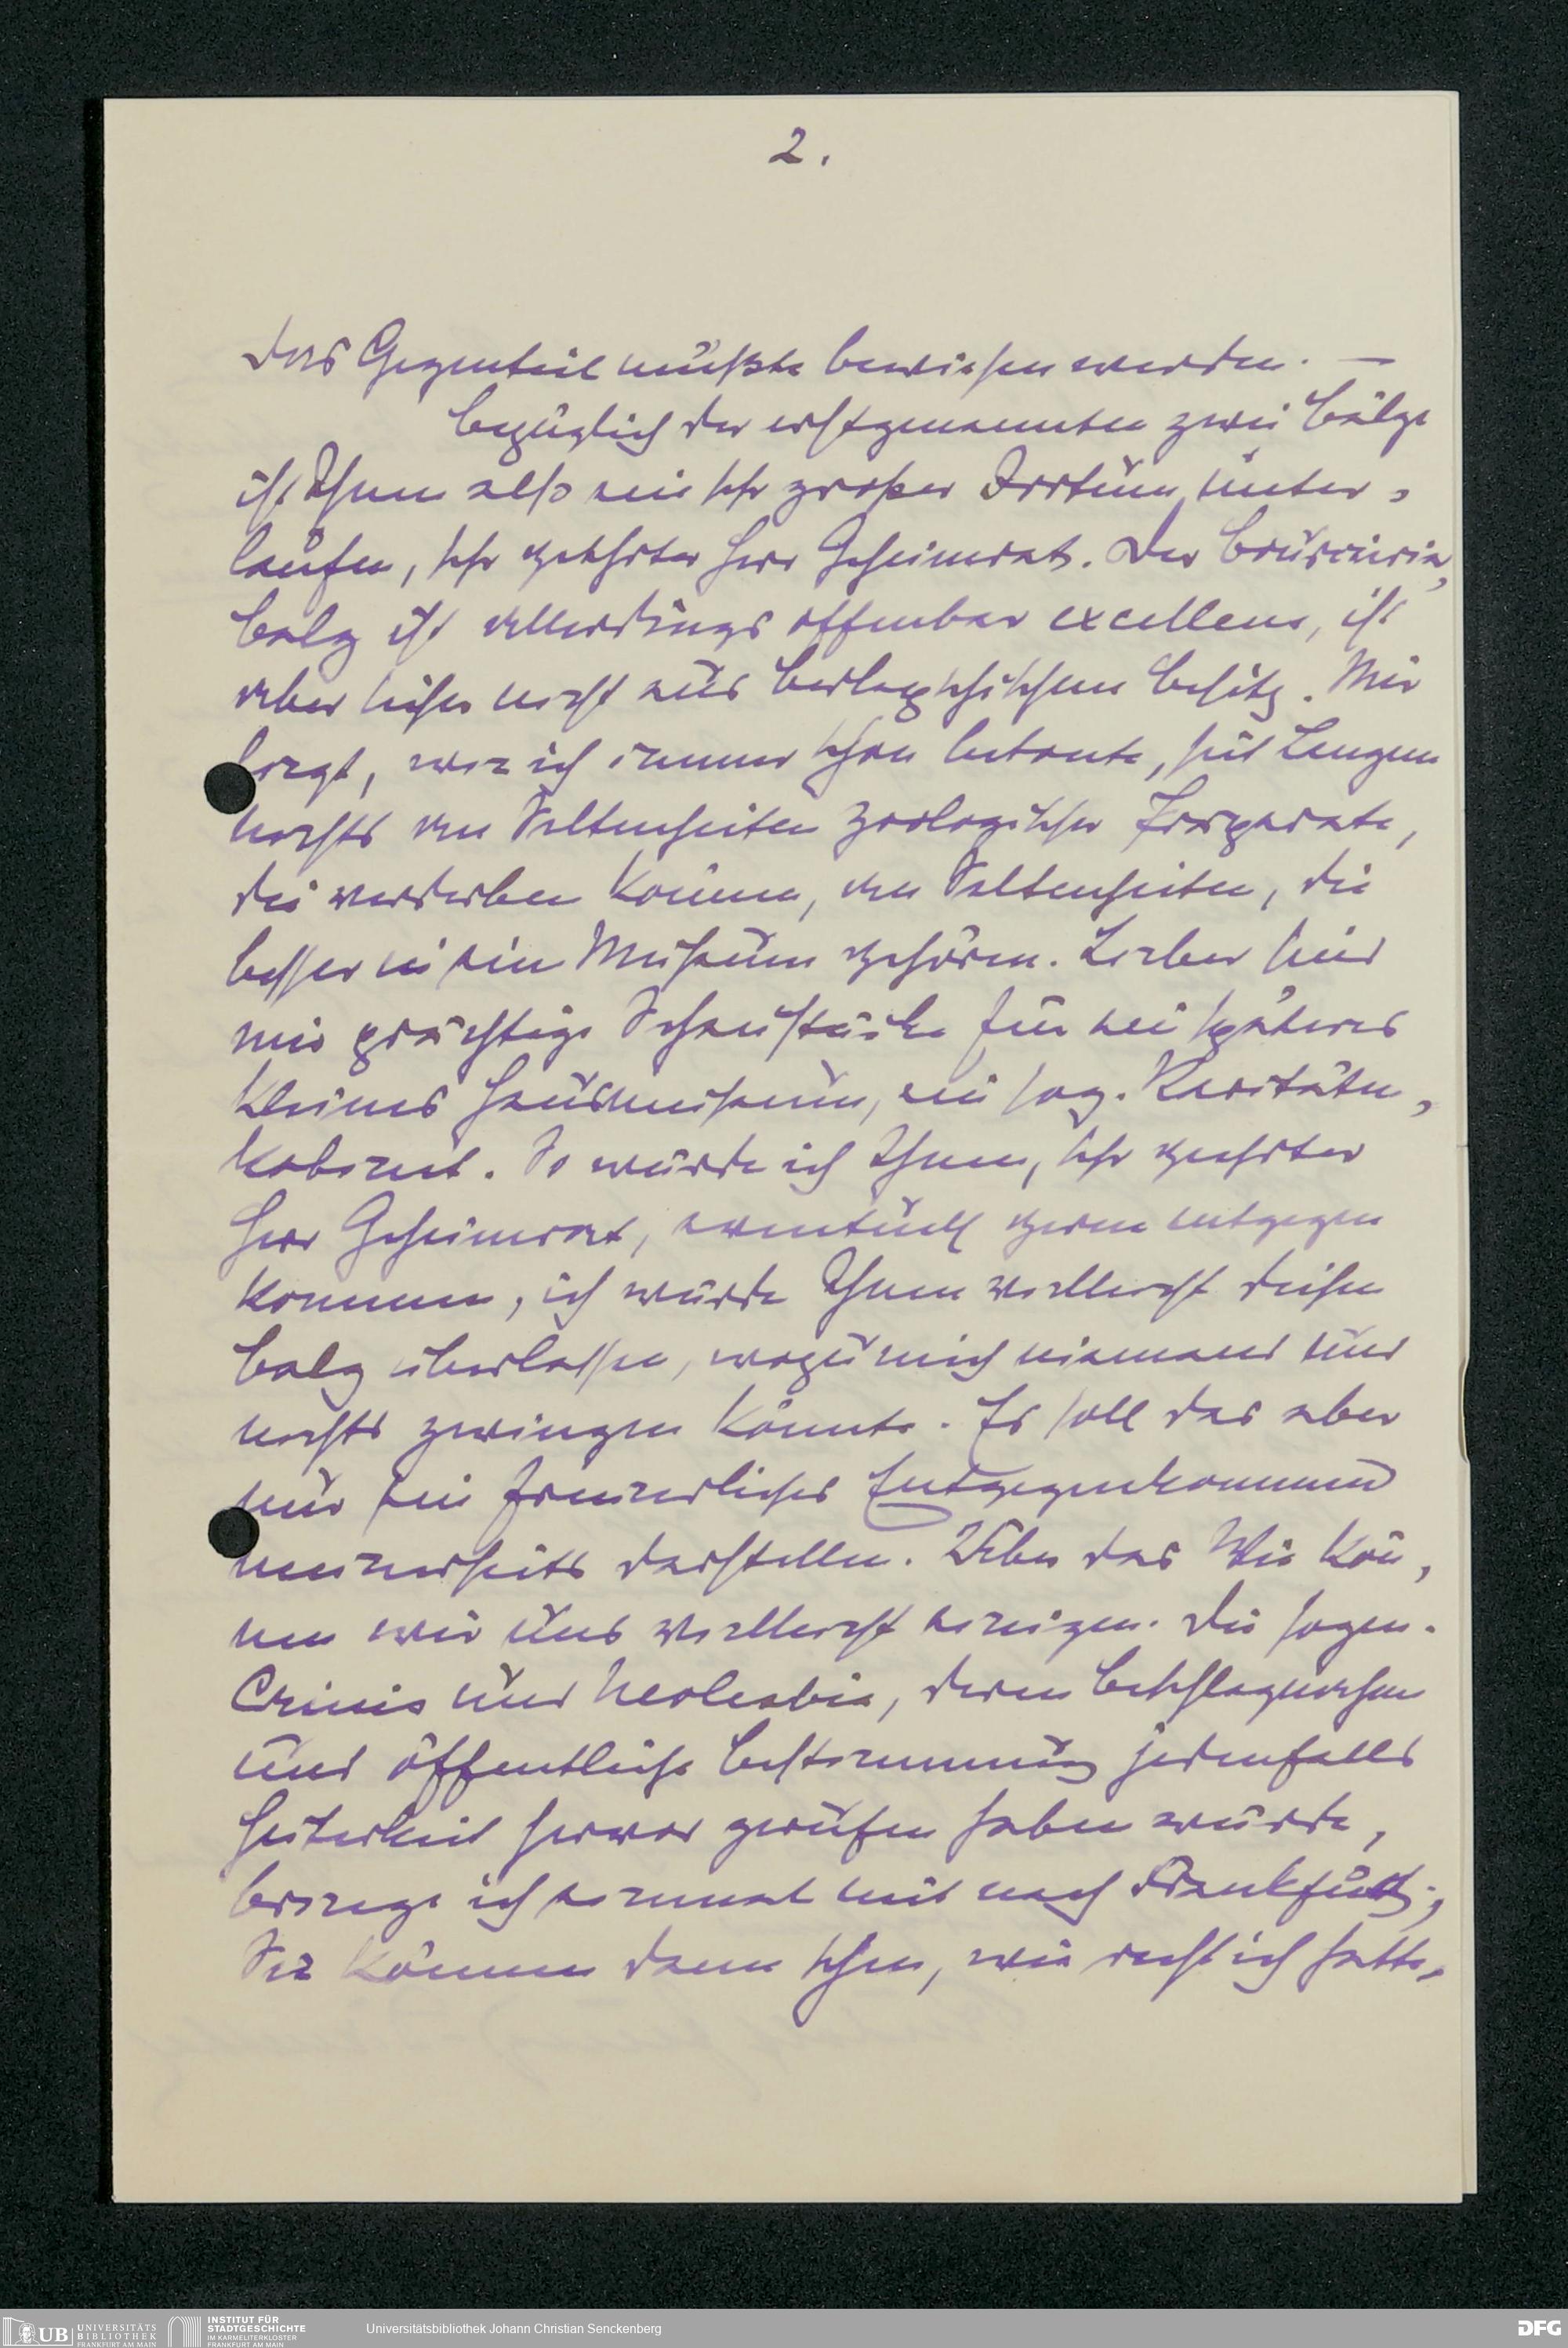 2.
das Gegenteil müßte bewiesen werden. —
Bezüglich der erstgenannten zwei Bälge
ist Ihnen also ein sehr großer Irrtum unter-
laufen, sehr geehrter Herr Geheimrat. Der
balg ist allerdings offenbar excellens, ist
aber sicher nicht aus Berlepschischem Besitz. Mir
liegt, wie ich immer schon betonte, seit Langem
nichts an Seltenheiten zoologischer Präparate,
die verderben können, an Seltenheiten, die
besser in ein Museum gehören. Lieber sind
mir prächtige Schaustücke für ein späteres
kleines Hausmuseum, ein sog. Raritäten-
kabinet. So würde ich Ihnen, sehr geehrter
Herr Geheimrat, eventuell gerne entgegen
kommen, ich würde Ihnen vielleicht diesen
Balg überlassen, wozu mich niemand und
nichts zwingen könnte. Es soll das aber
nur ein freundliches Entgegenkommen
meinerseits darstellen. Über das Wie kön-
nen wir uns vielleicht einigen. Die sogen.
und Neolesbia, deren Beschlagnahme
und öffentliche Bestimmung jedenfalls
Heiterkeit hervor gerufen haben würde,
bringe ich einmal mit nach Frankfurt;
Sie können dann sehen, wie recht ich hatte,
UB UNIVERSITÄTS
BIBLIOTHEK
FRANKFURT AM MAIN
INSTITUT FÜR
STADTGESCHICHTE
IM KARMELITERKLOSTER
FRANKFURT AM MAIN
Universitätsbibliothek Johann Christian Senckenberg
DFG